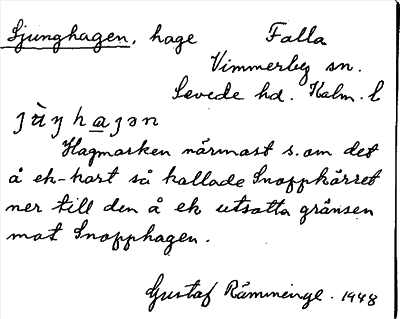 Ljunghagen, hage Falla
Vimmerby sn.
Sevede hd. Kalm. l
Hagmarken närmast s. om det
å ek-kart så kallade Snoppkärret
ner till den å ek utsatta gränsen
mot Snopphagen.
Gustaf Ramninge. 1948